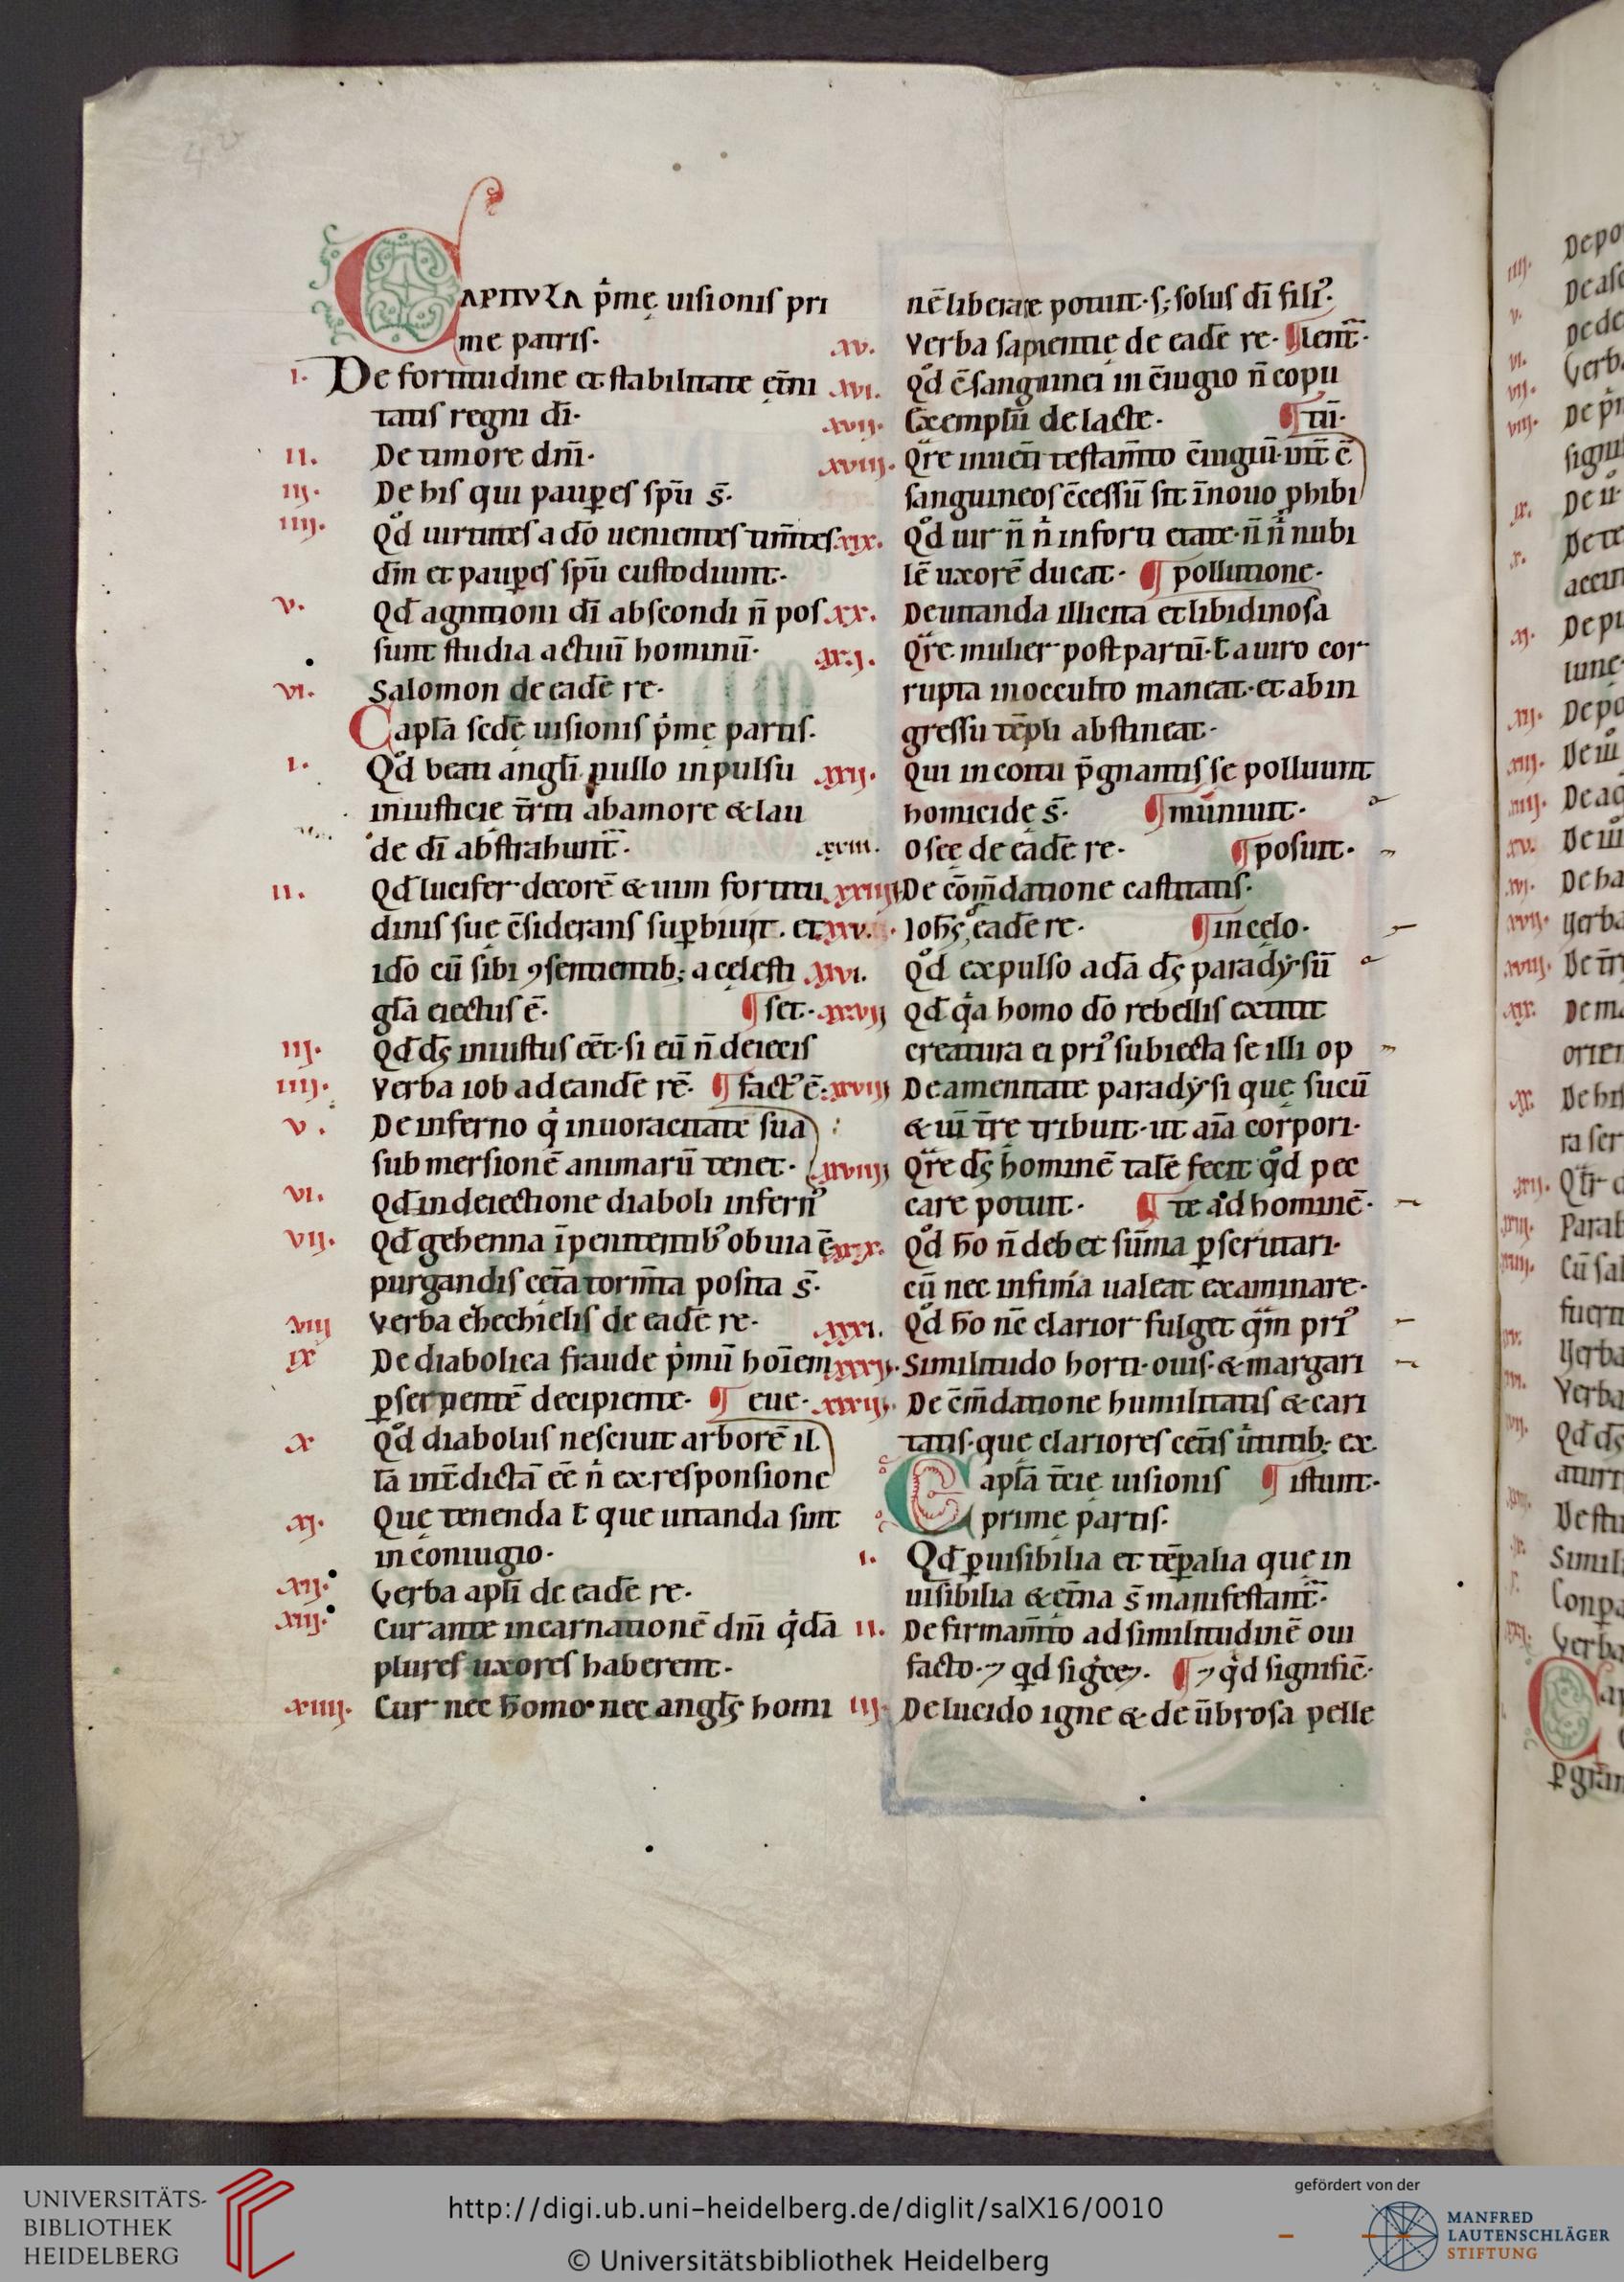 CAPITVLA p̄mę uisionis pri
me partis.
I. De fortitudine et stabilitate ęt̄ni
tatis regni dī.
II. De timore dnī.
III. De his qui paup̱es sp̄u s̄.
IIII. Qd̊ uirtutes a dō uenientes tim̄tes
dn̄m et paup̱es sp̄u custodiunt.
V. Qd̄ agnitioni dī abscondi n̄ pos
sunt studia actuū hominū.
VI. Salomon de eadē re.
Capl̄a sedę̄ uisionis p̄mę partis.
I. Qd̊ beati angl̄i pullo inpulsu
iniusticię t̄rīti ab amore & lau
de dī abstrahunt̄.
II. Qd̄ lucifer decorē & uim fortitu
dinis suę c̄siderans sup̱biuit. et
idō cū sibi ꝯsentientib; a cęlesti
gl̄a eiectus ē. ¶ set.
III. Qd̄ ds̄ iniustus eēt. si eū n̄ deiecis
IIII. Verba iob ad eandē rē. ¶ fact᾽ ē.
V. De inferno q̇ in uoracitate sua
submersionē animarū tenet.
VI. Qd̄ in deiectione diaboli infern᾽
VII. Qd̄ gehenna īpenitentib᾽ obuia ē
purgandis cet̄a torm̄ta posita s̄.
VIII Verba ezechielis de eadē re.
IX De diabolica fraude p̄mū hoīem
p̱ serpentē decipiente. ¶ eue.
X Qd̊ diabolus nesciuit arborē il
lā int̄dictā eē n̄ ex responsione
XI. Quę tenenda ł quę uitanda sint
in coniugio.
XII. Verba apl̄i de eadē re.
XIII. Cur ante incarnationē dnī q̇dā
plures uxores haberent.
XIIII. Cur nec homo nec angl̄s homi
nē liberare potuit. s; solus dī fili᾽.
XV. Verba sapientię de eadē re. ¶ lent̄.
XVI. Qd̊ c̄sanguinei in c̄iugio n̄ copu
XVII. Exemplū de lacte. ¶ tū.
XVIII. Qre in uet̄i testam̄to c̄iugiū int̄ c̄
sanguineos c̄cessū sit ī nouo ꝓhibi
XIX. Qd̊ uir n̄ n̄ in forti etate. n̄ n̄ nubi
lē uxorē ducat. ¶ pollutione.
XX. De uitanda illicita et libidinosa
XXI. Qre mulier post partū. ł a uiro cor
rupta in occulto maneat. et ab in
gressu tēpli abstineat.
XXII. Qui in coitu p̄gnantis se polluunt
homicidę s̄. ¶ mūniuit.
XXIII. Osee de eadē re. ¶ posuit.
XXIIII De cōm̄datione castitatis.
XXV. Ioh̄s de eadē re. ¶ in cęlo.
XXVI. Qd̊ expulso adā ds̄ paradysū
XXVII Qd̄ q̇a homo dō rebellis extitit
creatura ei pri᾽ subiecta se illi op
XXVIII De amenitate paradysi quę sucū
& uī t̄rę tribuit. ut aīa corpori.
XXVIIII Qre ds̄ hominē talē fecit qd̊ pec
care potuit. ¶ te ad hominē.
XXX. Qd̊ ho n̄ debet sūma p̱scrutari.
cū nec infima ualeat examinare.
XXXI. Qd̊ ho nc̄ clarior fulget qm̄ pri᾽
XXXII. Similitudo horti. ouis. & margari
XXXIII. De c̄m̄datione humilitatis & cari
tatis. quę clariores cet̄is uirtutib; ex
Capl̄a t̄cię uisionis ¶ istunt.
primę partis.
I. Qd̄ p̱ uisibilia et tēp̱alia quę in
uisibilia & et̄na s̄ manifestant̄.
II. De firmam̄to ad similitudinē oui
facto. ⁊ qd̄ sig̊ce⁊. ¶ ⁊ qd̊ signific̄.
III. De lucido igne & de ūbrosa pelle
UNIVERSITÄTS-
BIBLIOTHEK
HEIDELBERG
http://digi.ub.uni-heidelberg.de/diglit/salX16/0010
© Universitätsbibliothek Heidelberg
gefördert von der
MANFRED
LAUTENSCHLÄGER
STIFTUNG